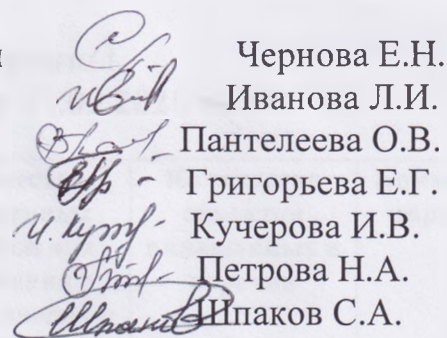 Чернова Е.Н.
Иванова Л.И.
Пантелеева О.В.
Григорьева Е.Г
Кучерова И.В.
Петрова Н.А.
Шпаков С.А.